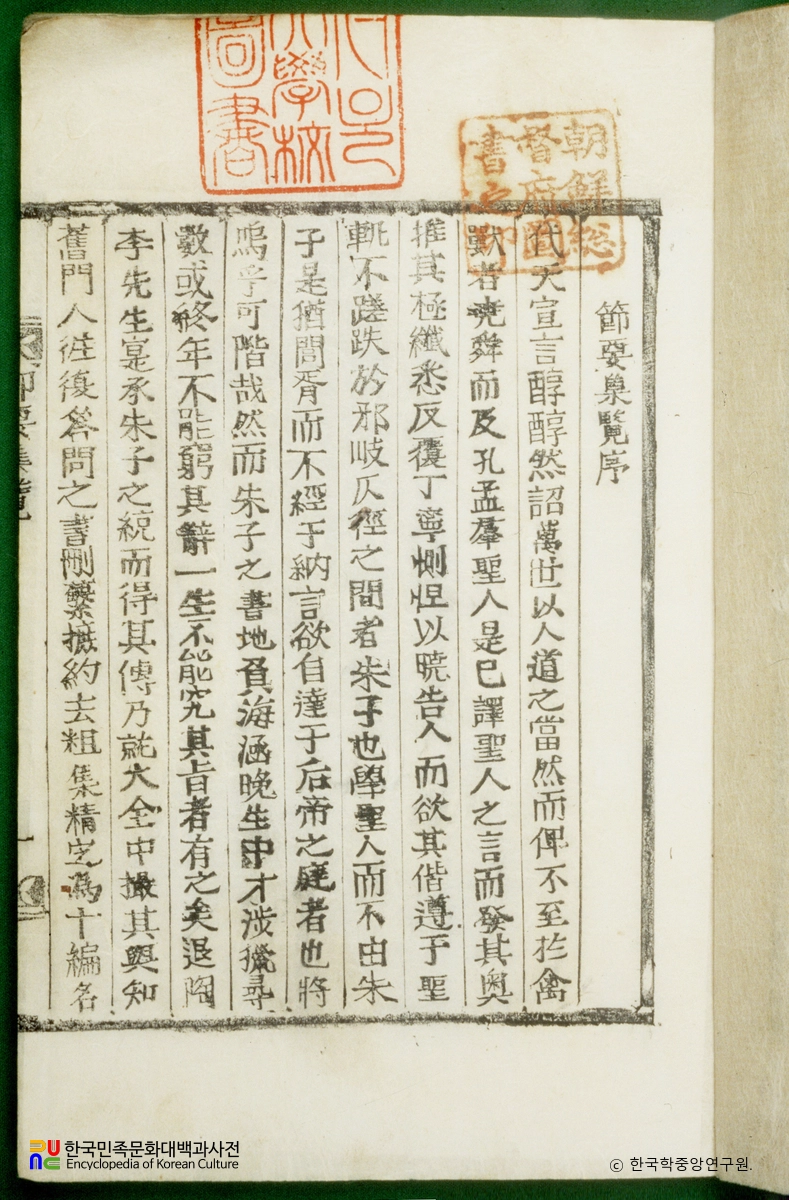 朝鮮総
督府圖
書之印
大學校
圖書
節要集覽序
代天宣言醇醇然詔萬世以人道之當然而俾不至扵禽
獸者堯舜而及孔孟羣聖人是已譯聖人之言而發其奧
推其極纖悉反覆丁寧惻怛以曉告人而欲其偕遵于聖
軌不蹉跌於邪岐仄徑之間者朱子也學聖人而不由朱
子是猶閽胥而不經于納言欲自達于后帝之庭者也將
嗚乎可階哉然而朱子之書地負海涵晚生中才涉獵尋
數或終年不能窮其辭一生不能究其旨者有之矣退陶
李先生寔承朱子之統而得其傳乃就大全中撮其與知
舊門人徃復答問之書刪蘩摭約去粗集精定爲十編名
節要集覽
一
한국민족문화대백과사전
Encyclopedia of Korean Culture
© 한국학중앙연구원.